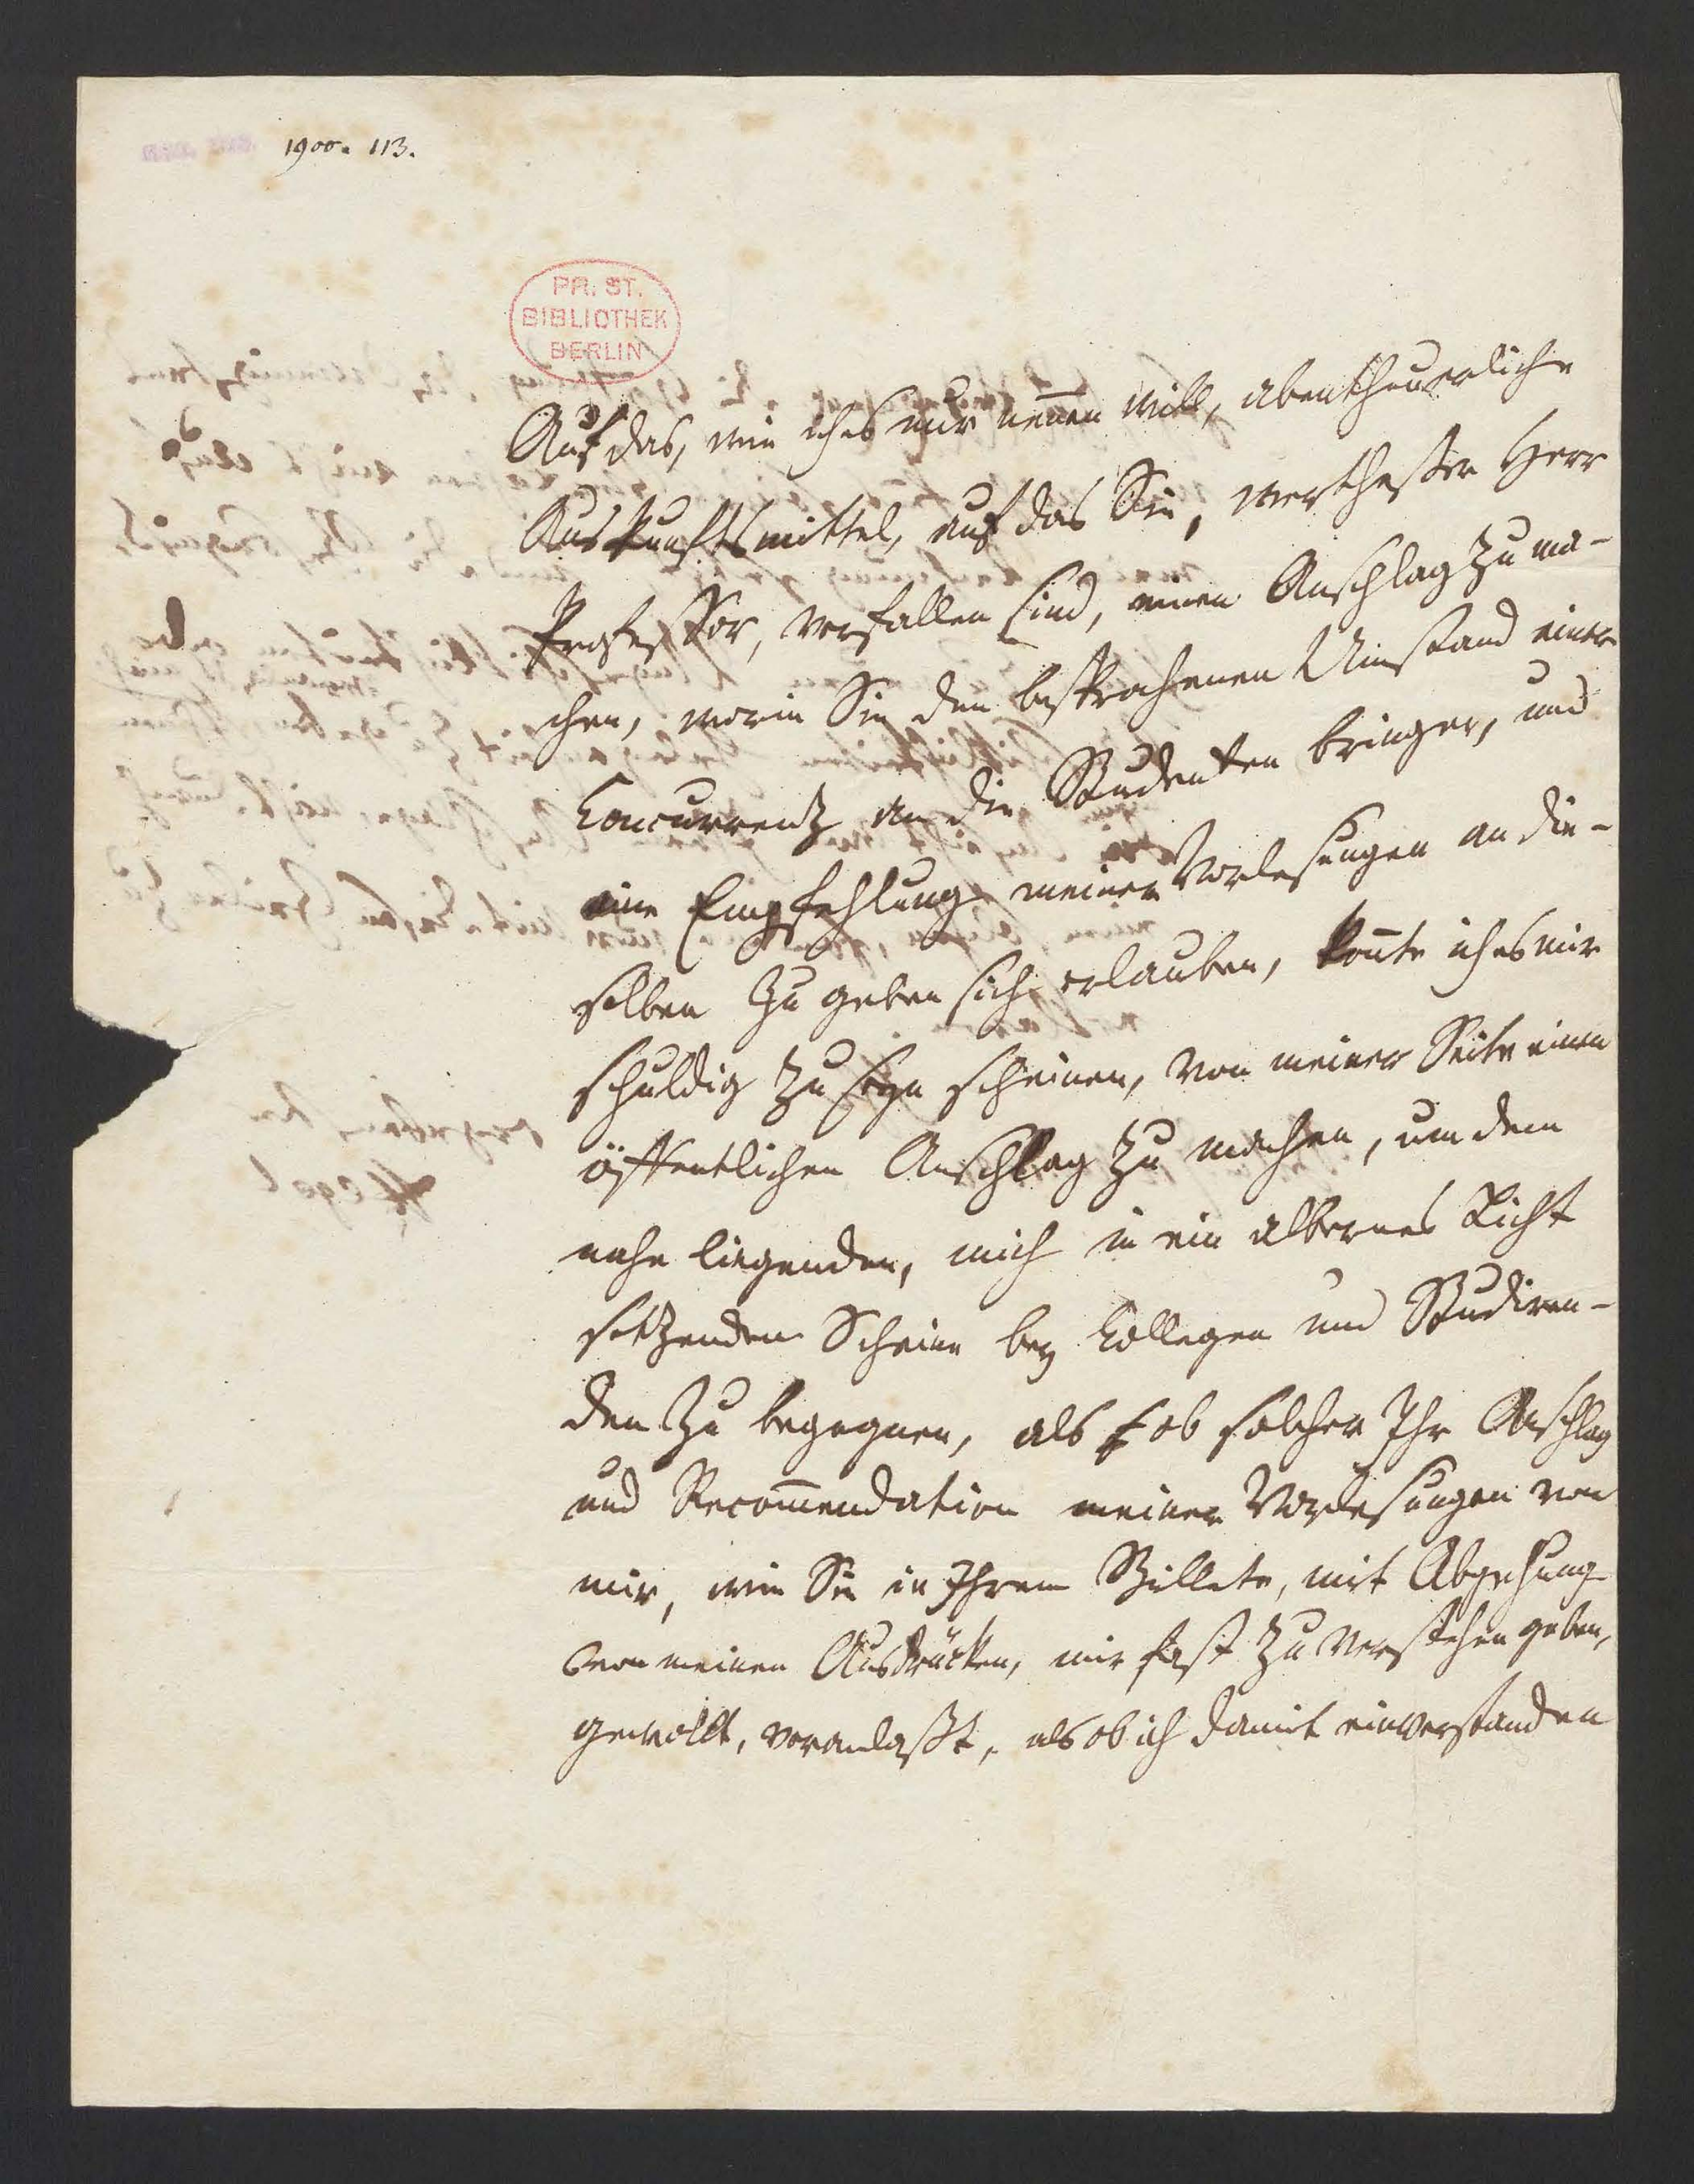 1900. 113.
PR. ST.
BIBLIOTHEK
BERLIN
Auf das, wie ich es nur nen̄en will, abentheuerliche
Auskunftsmittel, auf das Sie, werthester Herr
Professor, verfallen sind, einen Anschlag zu ma-
chen, worin Sie den besprochenen Umstand einer
Concurrenz an die Studenten bringen, und
eine Empfehlung meiner Vorlesungen an die-
selben zu geben sich erlauben, kön̄te ich es mir
schuldig zu seyn scheinen, von meiner Seite einen
öffentlichen Anschlag zu machen, um dem
nahe liegenden, mich in ein albernes Licht
setzenden Schein bey Collegen und Studiren-
den zu begegnen, als ob solcher Ihr Anschlag
und Recom̄endation meiner Vorlesungen von
mir, wie Sie in Ihrem Billete, mit
von meinen Ausdrücken, mir fast zu verstehen geben,
gewollt, veranlaßt, als ob ich damit einverstanden
Hegel